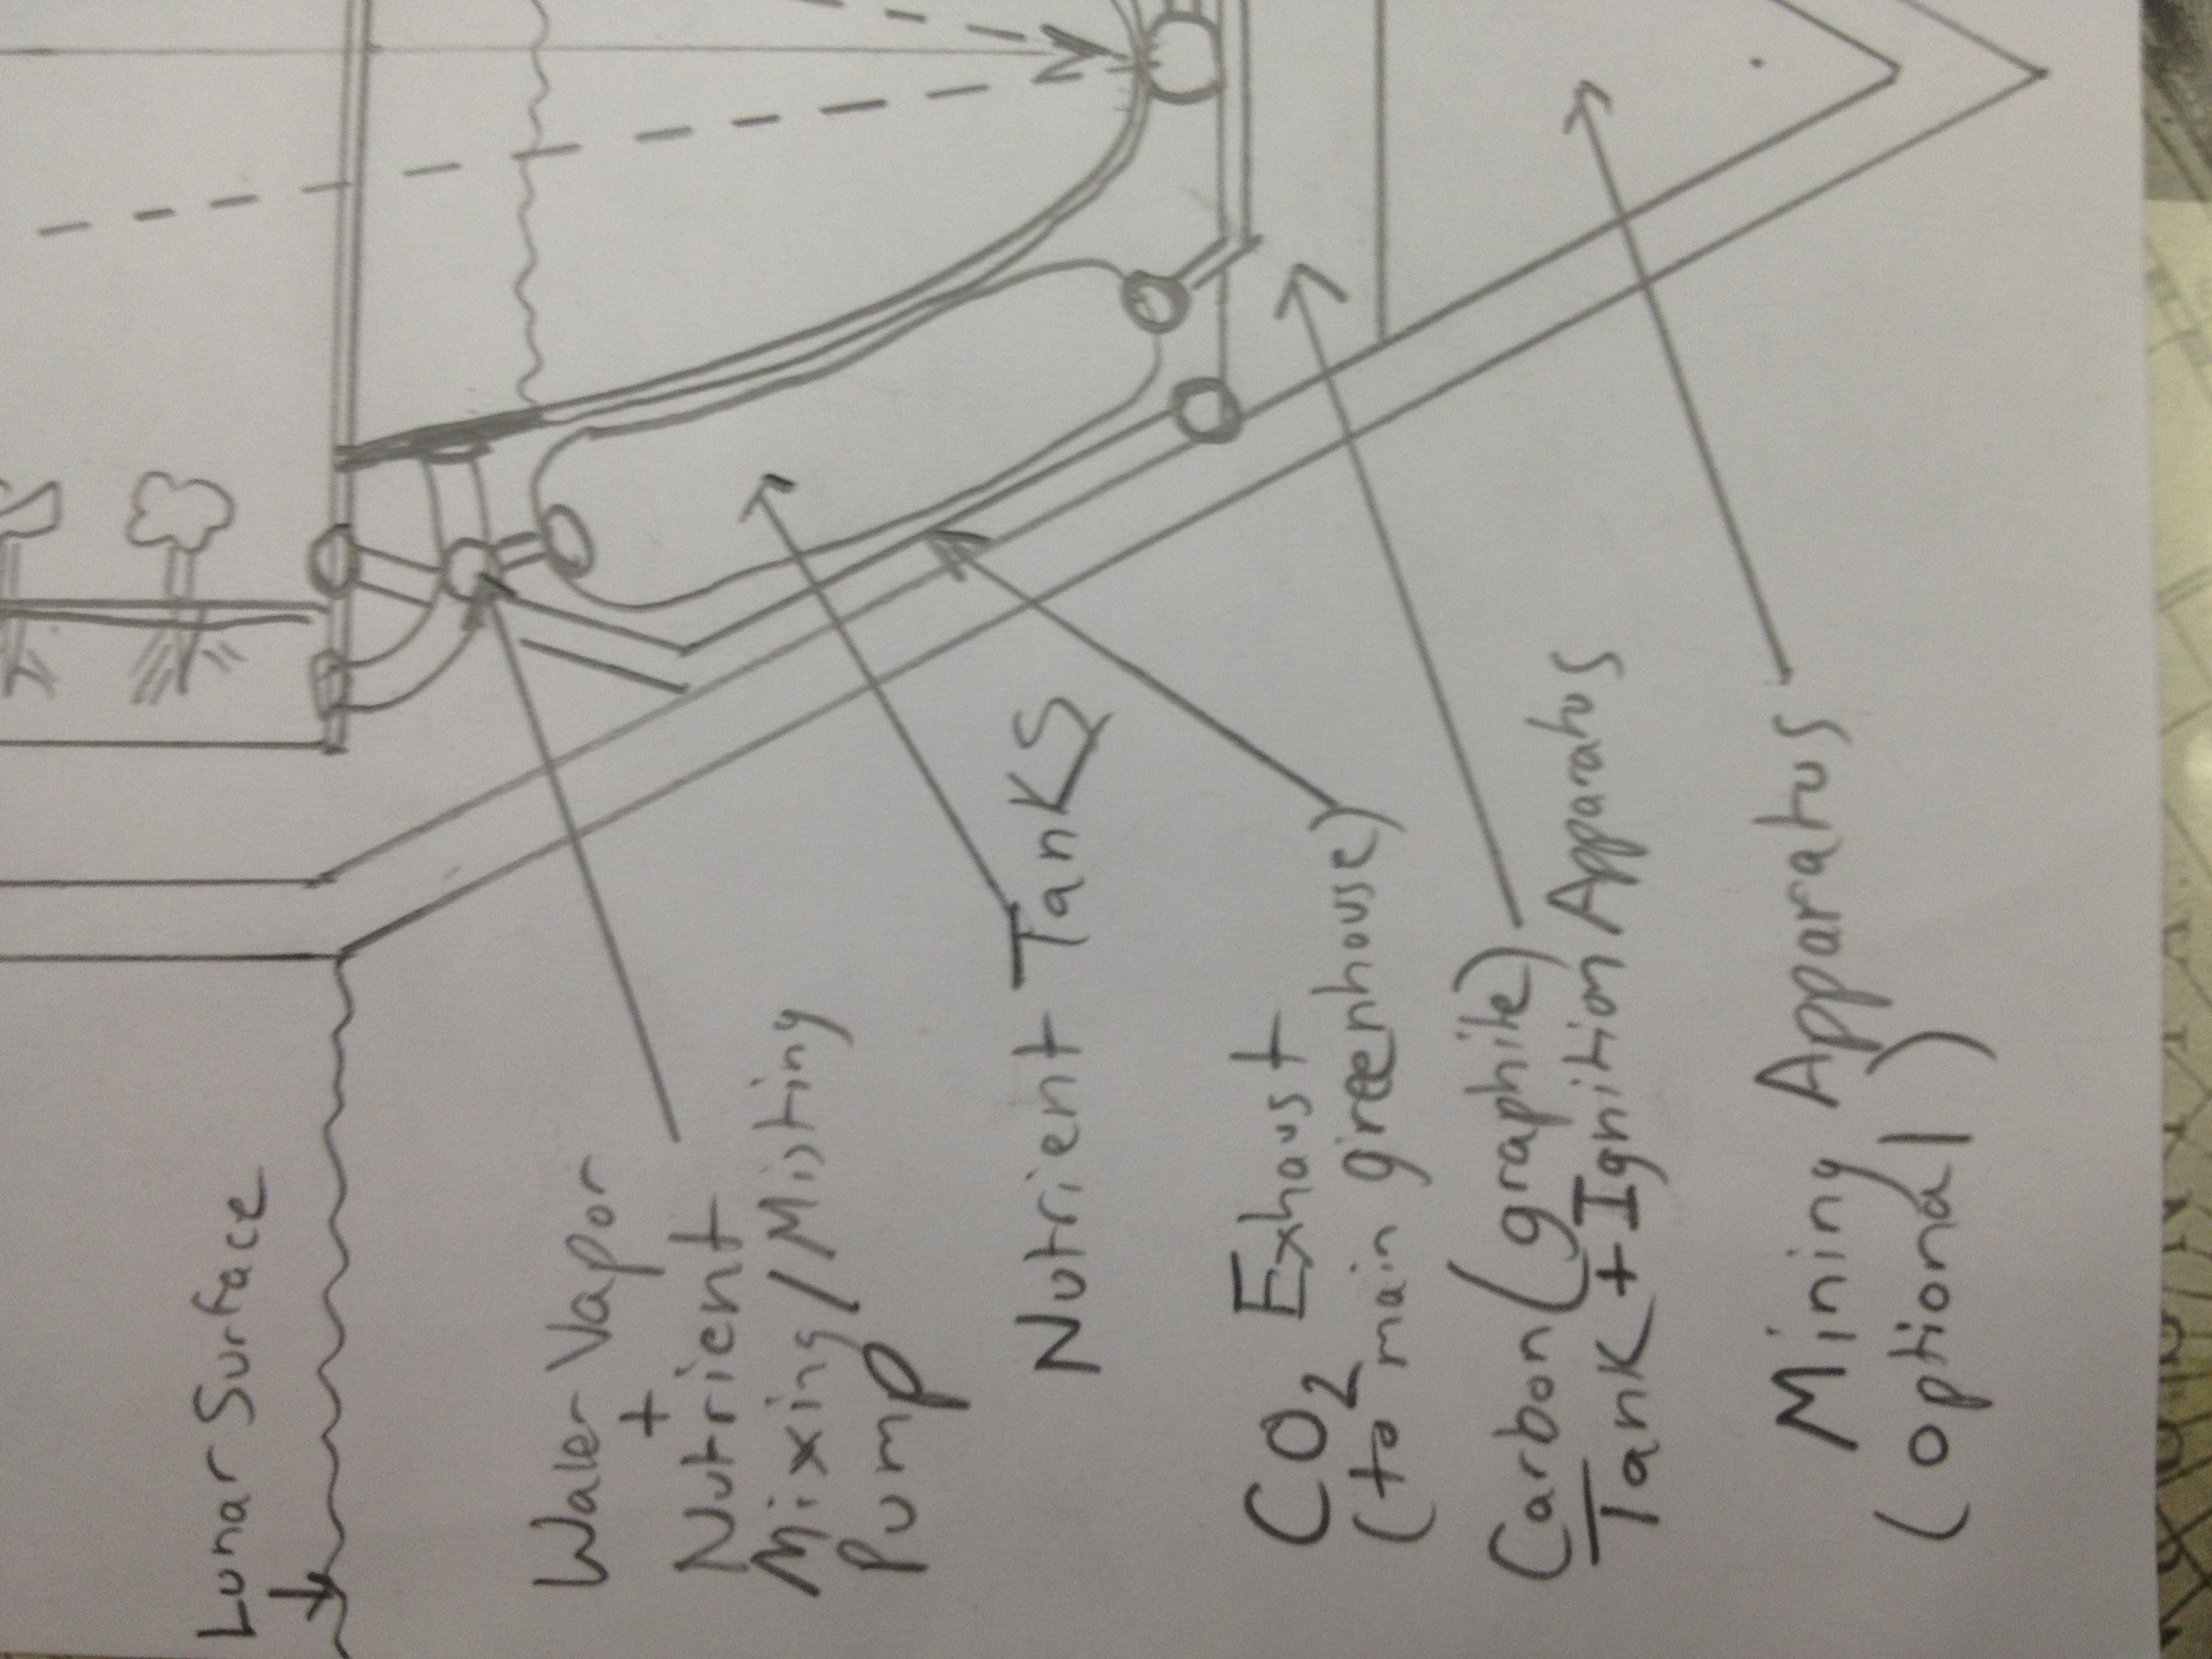 Lunar Surface
Water Vapor
+
Nutrient
Mixing/Misting
Pump
Nutrient Tanks
CO2 Exhaust
(to main greenhouse)
Carbon (graphite)
Tank + Ignition Apparatus
Mining Apparatus
(optional)